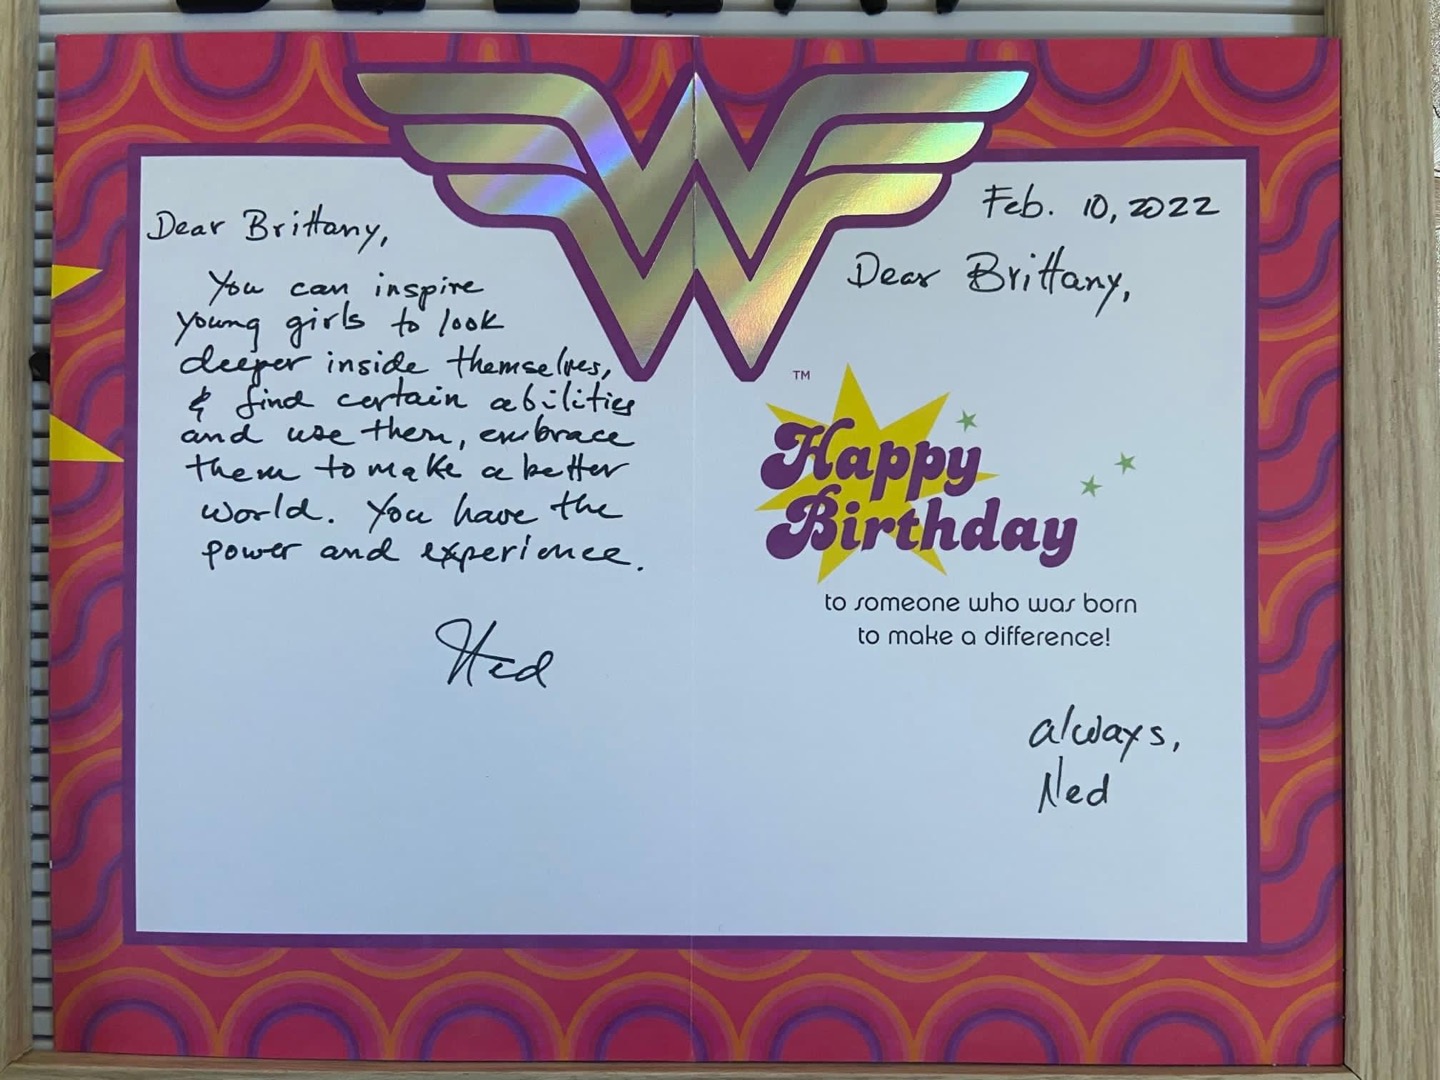 Dear Brittany,
You can inspire
young girls to look
deeper inside themselves,
& find certain abilities
and use them, embrace
them to make a better
world. You have the
power and experience.
Ned
Feb. 10, 2022
Dear Brittany,
TM
Happy
Birthday
to someone who was born
to make a difference!
always,
Ned